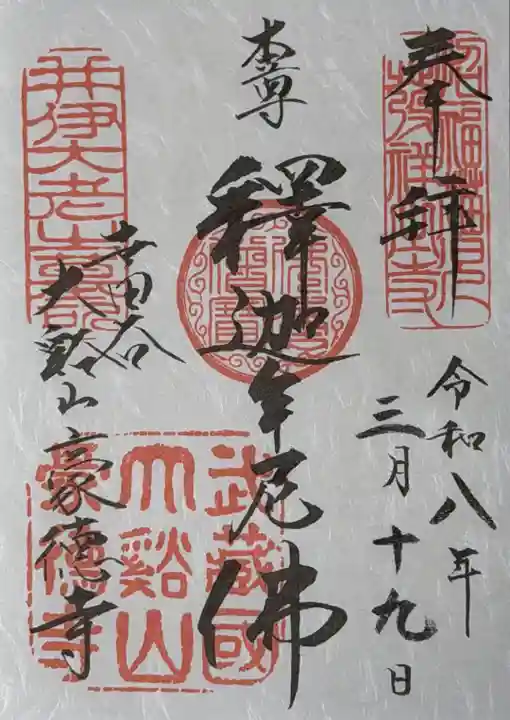 奉拝
令和八年
三月十九日
本尊
釋迦牟尼佛
世田谷
大谿山豪德寺
招福猫児
発祥寺
武藏國
大谿山
豪德寺
井伊大老山墓所